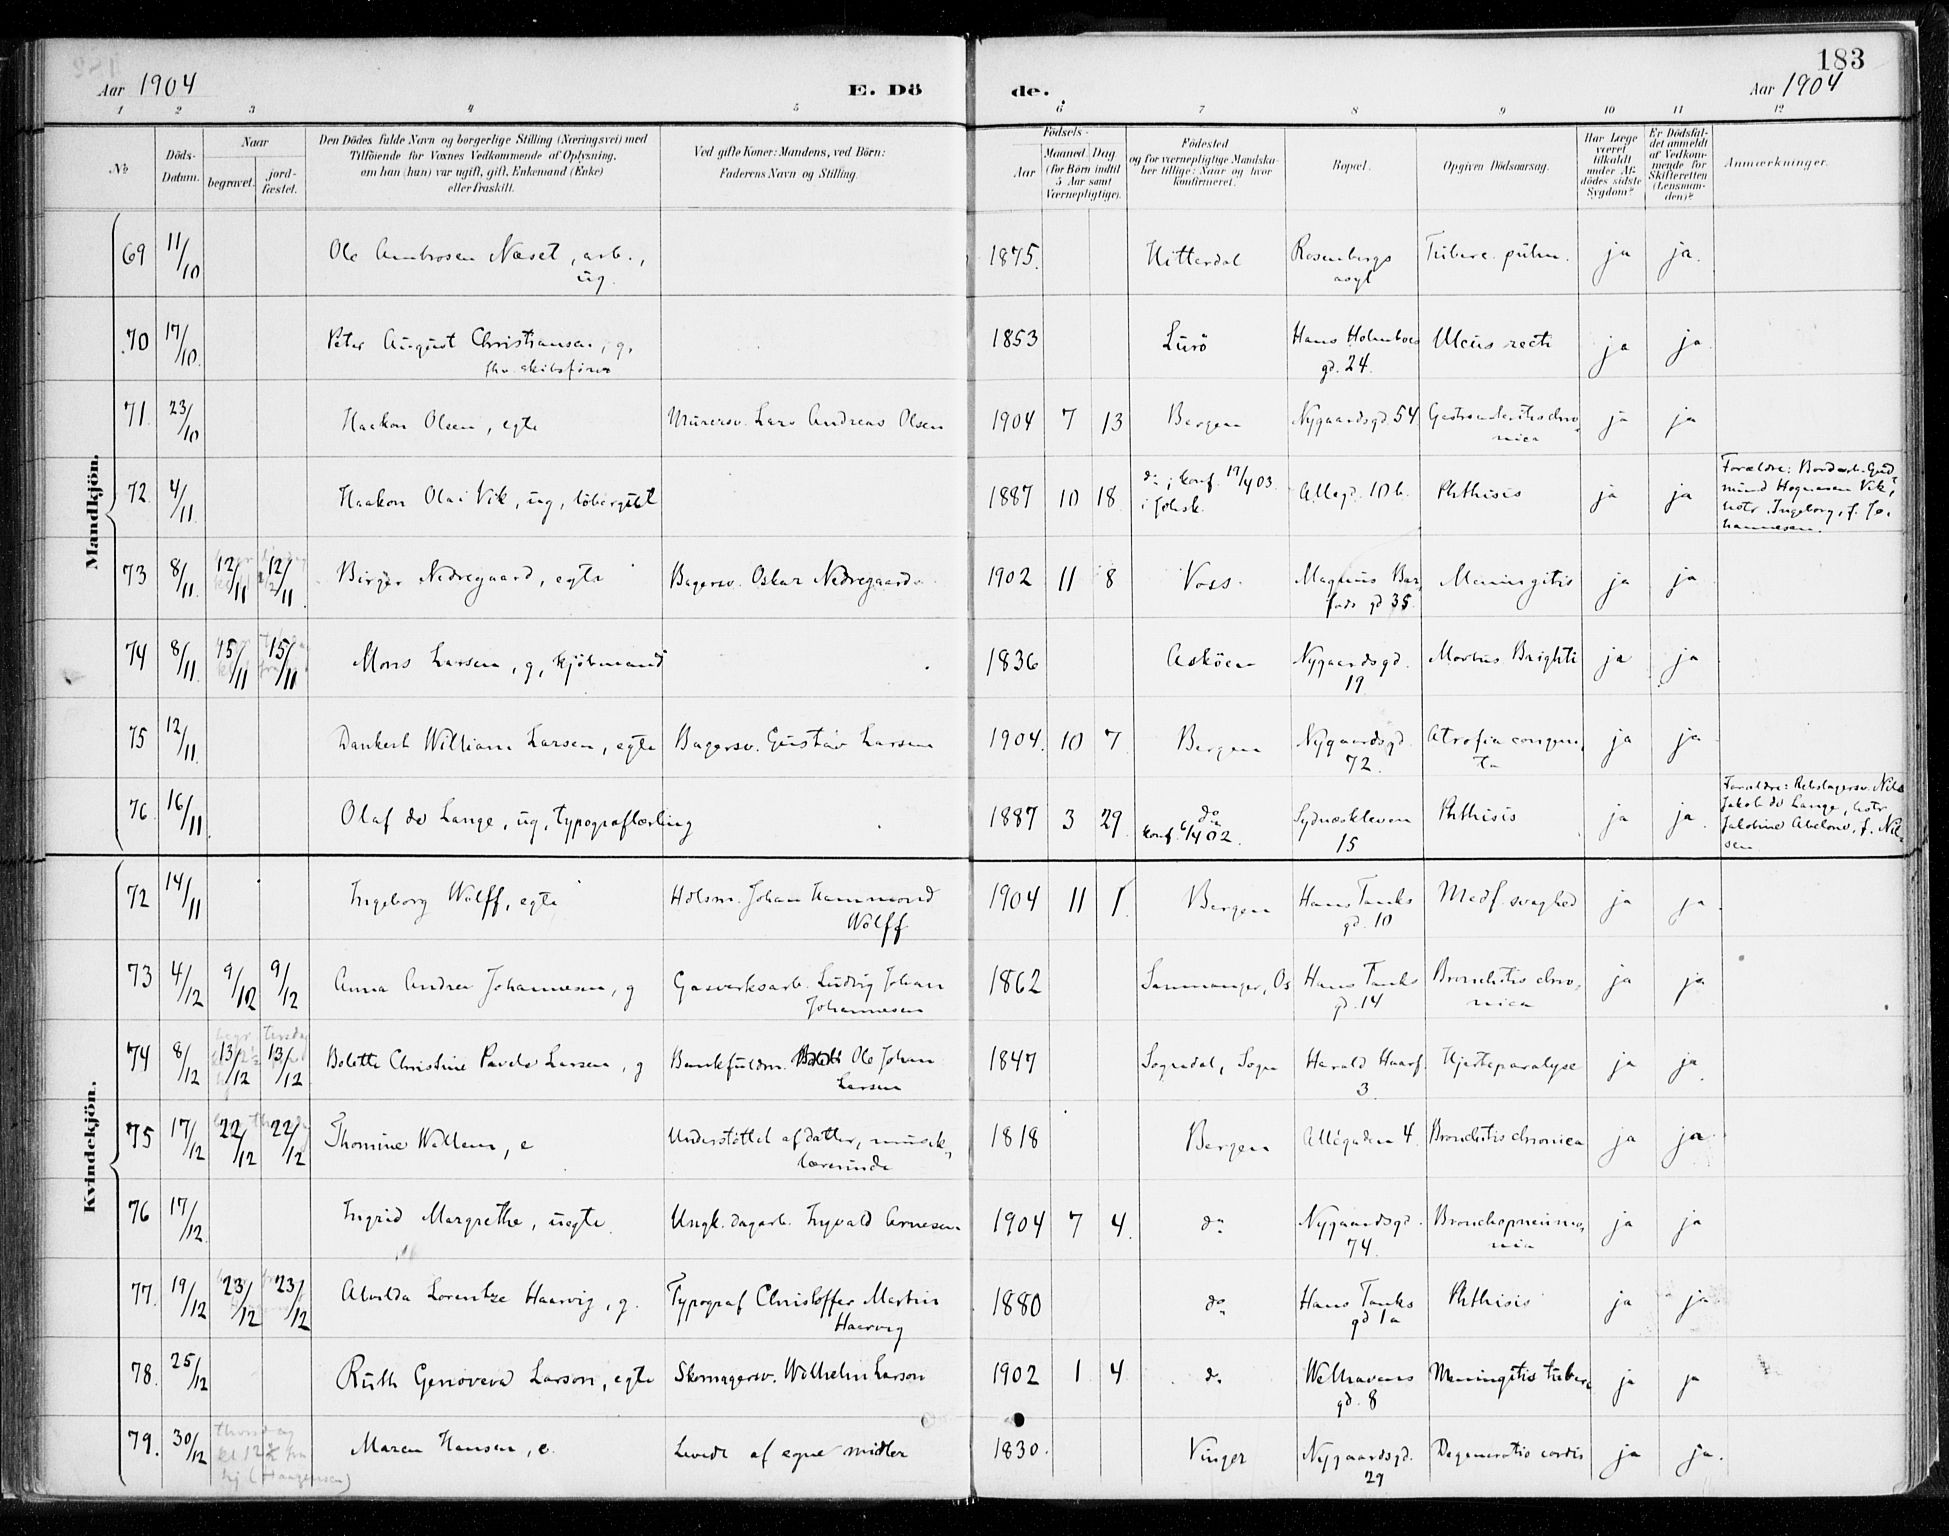 183
Aar 1904
E. Dö
de.
Aar 1904
1 2 3 4 5 6 7 8 9 10 11 12
No
Döds-Datum.
Naar
begravet.
jord-fæstet.
Den Dödes fulde Navn og borgerlige Stilling (Næringsvei) med
Tilföiende for Voxnes Vedkommende af Oplysning,
om han (hun) var ugift, gift, Enkemand (Enke)
eller fraskilt.
Ved gifte Koner: Mandens, ved Börn:
Faderens Navn og Stilling.
Födsels-
Aar
Maaned. Dag
(for Börn indtil
5 Aar samt
Værnepligtige).
Födested
og for værnepligtige Mandska-
ber tillige: Naar og hvor
konfirmeret.
Bopæl.
Opgiven Dödsaarsag.
Har Læge
været
tilkaldt
under Af-
dödes sidste
Sygdom?
Er Dödsfal-
det anmeldt
af Vedkom-
mende for
Skifteretten
(Lensman-
den)?
Anmærkninger.
Mandkjön.
69 11/10 Ole Ambrosen Næset, arb., 1875. Hitterdal Rosenbergs Tuberc. pulm. ja ja.
ug. asyl
70 17/10 Peter August Christiansen, g, 1853 Lurö Hans Holmboes Ulcus recti ja ja
fhv. skibsfører gd. 24.
71. 23/10 Haakon Olsen, egte Murersv. Lars Andreas Olsen 1904 7 13 Bergen Nygaardsgd. 54. Gastroenteritis chro-
nica ja ja
72. 4/11 Haakon Olai Vik, ug, løbergut 1887 10 18. do, konf. 19/4 03. Allegd. 10 b. Phthisis ja ja
i Johsk.
Forældre: Bordarb. Gud-
mund Hognesen Vik,
hstr. Ingeborg, f. Jo-
hannesen.
73 8/11. 12/11 12/11 Birger Nedregaard, egte Bagersv. Oskar Nedregaard 1902 11 8 Voss Magnus Bar- Meningitis ja ja
fods gd 35.
74 8/11. 15/11 15/11 Mons Larsen, g, kjöbmand 1836 Asköen Nygaardsgd. Morbus Brighti ja ja
19
75 12/11. Dankert William Larsen, egte Bagersv. Gustav Larsen 1904. 10 7 Bergen Nygaardsgd. Atrofia congeni- ja ja
72. ta
76. 16/11. Olaf de Lange, ug, typograflærling 1887 3 29. do Sydneskleven Phthisis ja ja.
konf. 6/4 02. 15
Forældre: Rebslagersv. Nils
Jakob de Lange, hstr.
Jakobine Abelone, f. Nil-
sen
Kvindekjön.
72 14/11 Ingeborg Wolff, egte Hdlsm. Johan Hammond 1904 11 1. Bergen Hans Tanks Medf. svaghed ja ja.
Wolff gd. 10
73 4/12 9/12 9/12 Anna Andrea Johannesen, g Gasverksarb. Ludvig Johan 1862 Sammanger, Os Hans Tanks Bronchitis chro- ja ja
Johannesen gd. 14 nica
74 8/12 13/12 13/12 Bolette Christine Pavels Larsen, g Bankfuldm. Ole Johan 1847 Sogndal, Sogn Harald Haarf. Hjerteparalyse ja ja
Larsen 3.
75 17/12 22/12 22/12 Thomine Wellem, e Understöttet af datter, musik- 1818 Bergen Allégaden 4. Bronchitis chronica ja ja
lærerinde
76 17/12. Ingrid Margrethe, uegte. Ungk. dagarb. Ingvald Arnesen 1904 7 4. do Nygaardsgd. Bronchopneumo- ja ja
74. nia
77. 19/12 23/12 23/12 Alvilda Lorentze Haarvig, g. Typograf Christoffer Martin 1880 do Hans Tanks Phthisis ja ja
Haarvig gd 1a
78. 25/12 Ruth Genoveva Larson, egte Skomagersv. Wilhelm Larson 1902 1 4. do Welhavens Meningitis tuberc. ja ja
gd. 8
79. 30/12 Maren Hansen, e. Levede af egne midler 1830. Vinger Nygaardsgd. Degeneratio cordis ja ja.
29
(Haagensen)